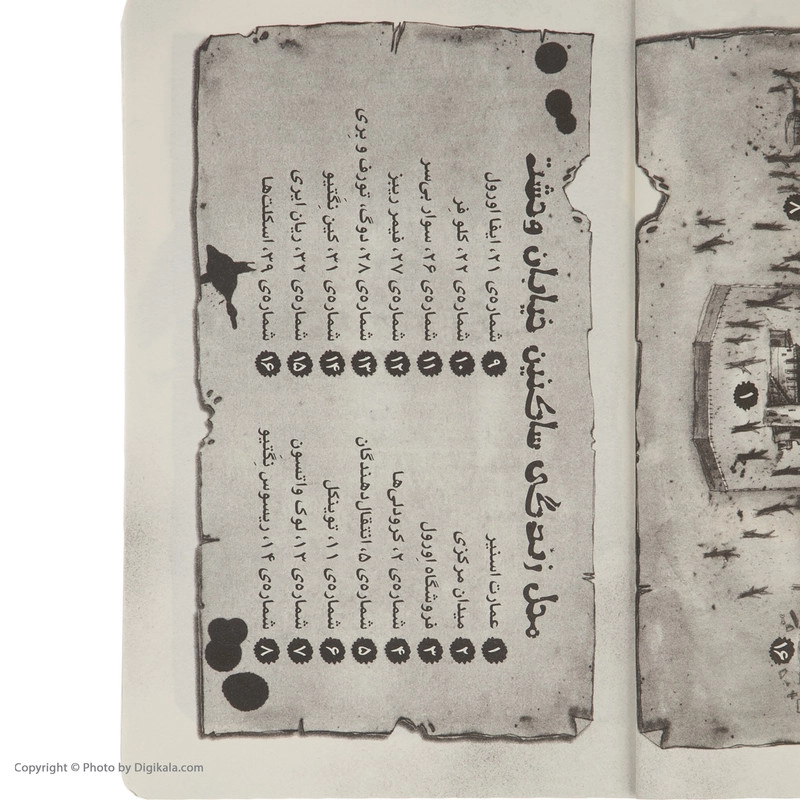 محل زندگی ساکنین خیابان وحشت
۱ عمارت اسنیر
۲ میدان مرکزی
۳ فروشگاه اِورول
۴ شماره‌ی ۲، کرودلی‌ها
۵ شماره‌ی ۵، انتقال‌دهندگان
۶ شماره‌ی ۱۱، توینکل
۷ شماره‌ی ۱۳، لوک واتسون
۸ شماره‌ی ۱۴، ریسوس نِگتیو
۹ شماره‌ی ۲۱، ایفا اورول
۱۰ شماره‌ی ۲۲، کلو فِر
۱۱ شماره‌ی ۲۶، سوار بی‌سر
۱۲ شماره‌ی ۲۷، فیمر ریبز
۱۳ شماره‌ی ۲۸، دوگ، تورف و بِری
۱۴ شماره‌ی ۳۱، کین نِگتیو
۱۵ شماره‌ی ۳۲، ریان ایری
۱۶ شماره‌ی ۳۹، اسکلت‌ها
۸
۱
۱۶
Copyright © Photo by Digikala.com